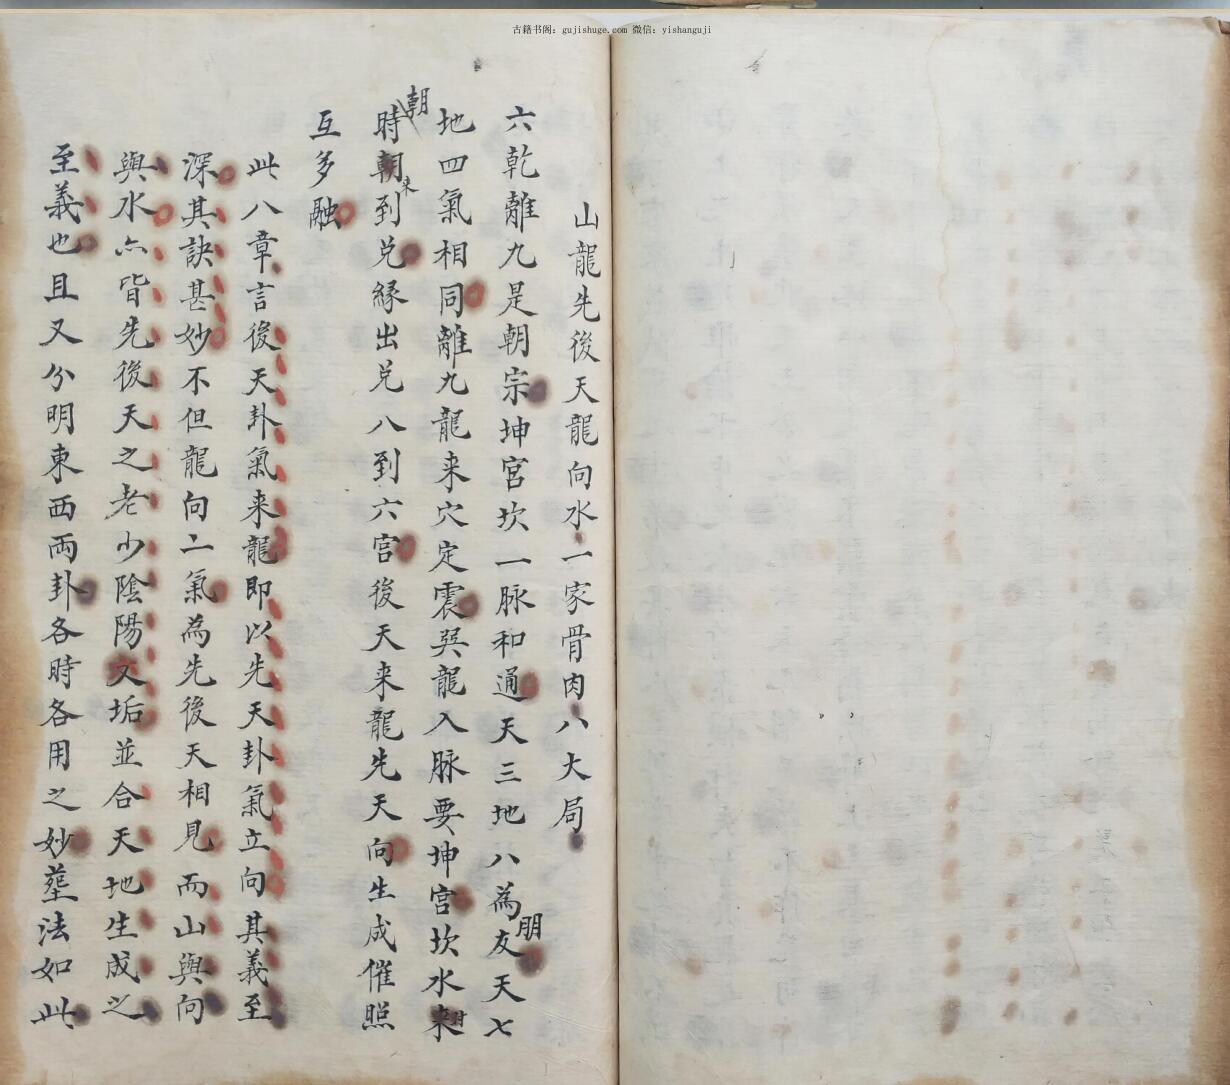 古籍书阁：gujishuge.com 微信：yishanguji
山龍先後天龍向水一家骨肉八大局
六乾離九是朝宗坤宮坎一脉和通天三地八為朋友天七
地四氣相同離九龍来穴定震巽龍入脉要坤宮坎水来
時朝朝来到兑緣出兑八到六宮後天来龍先天向生成催照
互多融
此八章言後天卦氣来龍即以先天卦氣立向其義至
深其訣甚妙不但龍向二氣為先後天相見而山與向
與水亦皆先後天之老少陰陽又垢並合天地生成之
至義也且又分明東西両卦各時各用之妙塟法如此